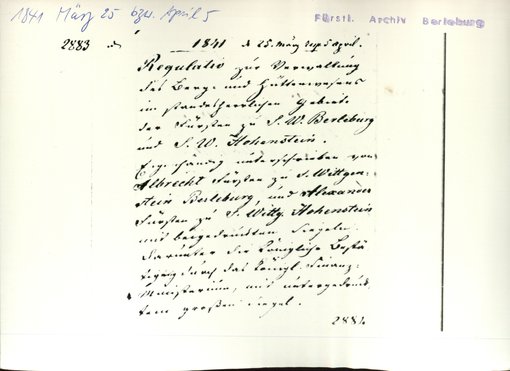 1841 März 25 bzw. April 5
Fürstl. Archiv Berleburg
2883 1841 d 25. März resp 5 april.
Regulativ zur Verwaltung
des Berg- und Hüttenwesens
im standesherrlichen Gebiete
der Fürsten zu S. W. Berleburg
und S. W. Hohenstein.
Eigenhändig unterschrieben von
Albrecht Fürsten zu S. Wittgen-
stein Berleburg, und Alexander
Fürsten zu S. Wittg. Hohenstein
mit beigedruckten Siegeln.
Darunter die königliche Bestä-
tigung durch das königl. Finanz-
Ministerium, mit untergedruck-
tem großen Siegel.
2884